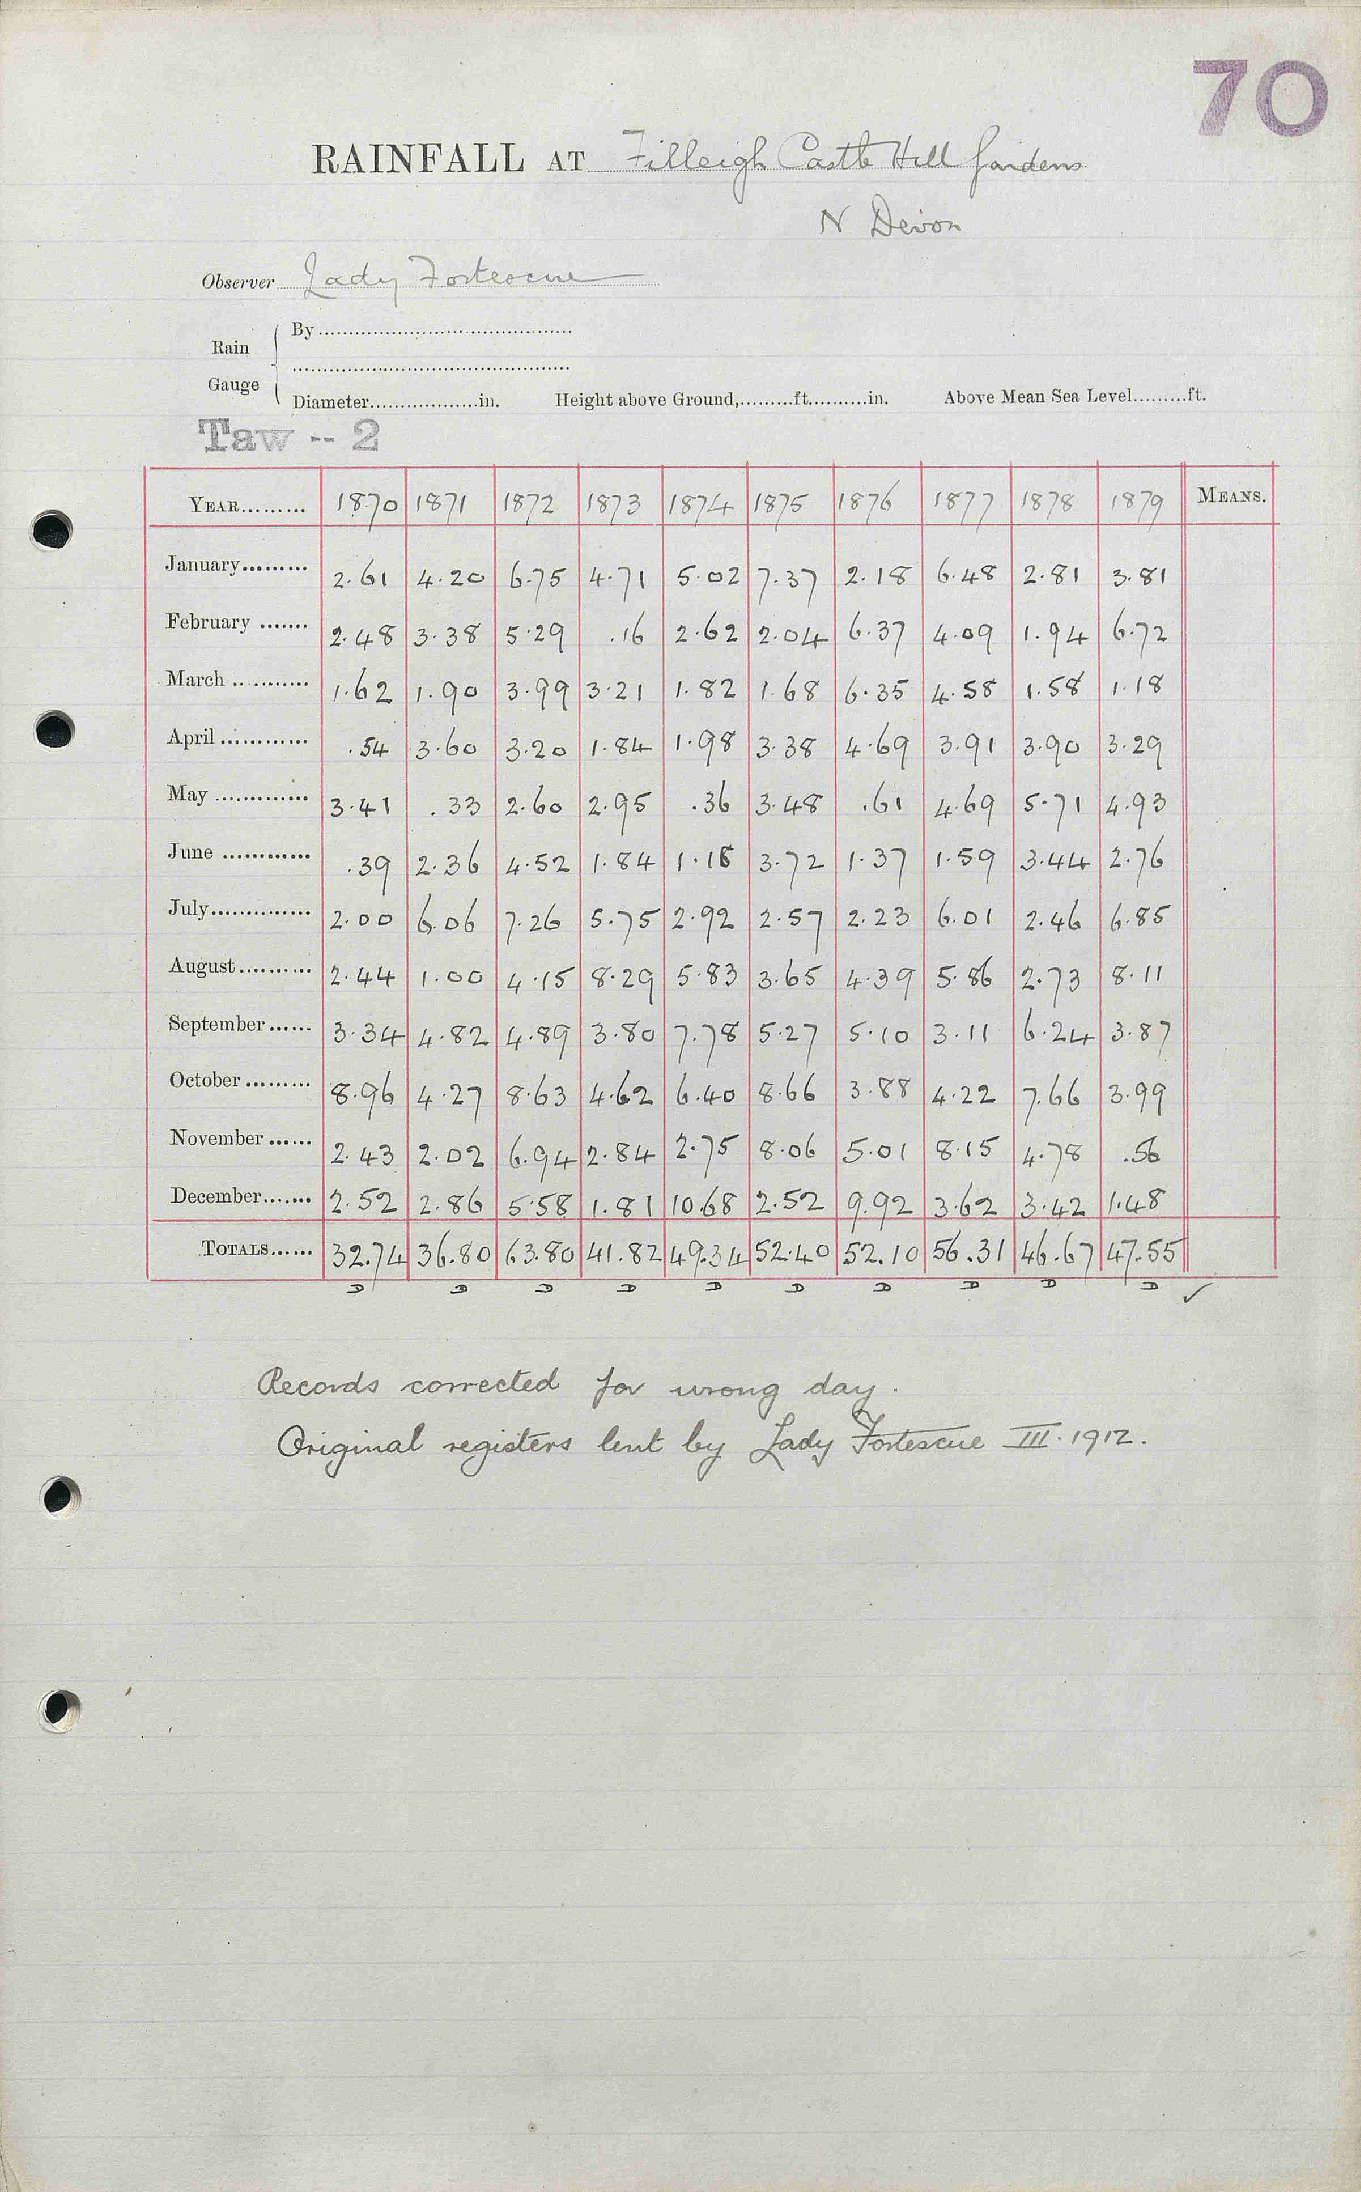 70
RAINFALL AT Filleigh Castle Hill Gardens
N Devon
Observer Lady Fortescue
Rain Gauge
By
Diameter in. Height above Ground, ft. in. Above Mean Sea Level ft.
Taw -- 2
YEAR 1870 1871 1872 1873 1874 1875 1876 1877 1878 1879 MEANS.
January 2.61 4.20 6.75 4.71 5.02 7.37 2.18 6.48 2.81 3.81
February 2.48 3.38 5.29 .16 2.62 2.04 6.37 4.09 1.94 6.72
March 1.62 1.90 3.99 3.21 1.82 1.68 6.35 4.58 1.58 1.18
April .54 3.60 3.20 1.84 1.98 3.38 4.69 3.91 3.90 3.29
May 3.41 .33 2.60 2.95 .36 3.48 .61 4.69 5.71 4.93
June .39 2.36 4.52 1.84 1.18 3.72 1.37 1.59 3.44 2.76
July 2.00 6.06 7.26 5.75 2.92 2.57 2.23 6.01 2.46 6.85
August 2.44 1.00 4.15 8.29 5.83 3.65 4.39 5.86 2.73 8.11
September 3.34 4.82 4.89 3.80 7.78 5.27 5.10 3.11 6.24 3.87
October 8.96 4.27 8.63 4.62 6.40 8.66 3.88 4.22 7.66 3.99
November 2.43 2.02 6.94 2.84 2.75 8.06 5.01 8.15 4.78 .56
December 2.52 2.86 5.58 1.81 10.68 2.52 9.92 3.62 3.42 1.48
TOTALS 32.74 36.80 63.80 41.82 49.34 52.40 52.10 56.31 46.67 47.55
D D D D D D D D D D ✓
Records corrected for wrong day.
Original registers lent by Lady Fortescue III. 1912.